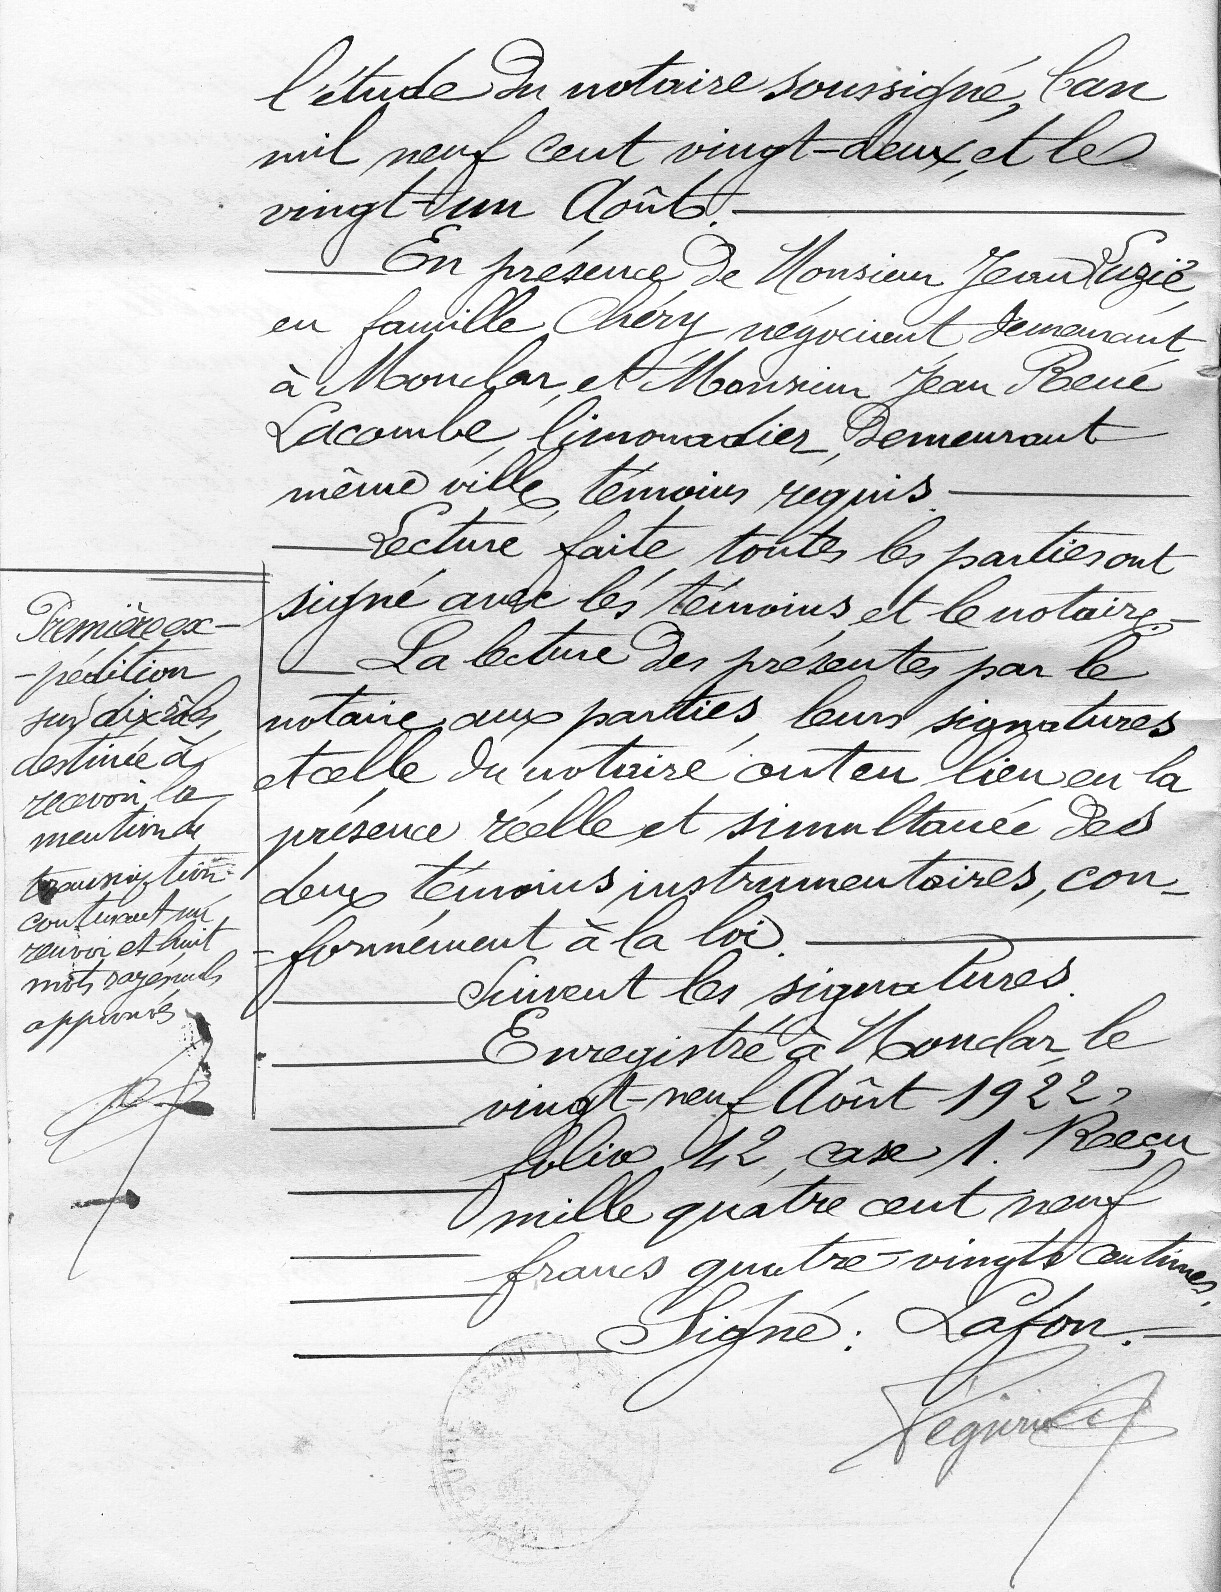 l'étude du notaire soussigné, l'an
mil neuf cent vingt-deux, et le
vingt-un Août.
En présence de Monsieur Jean Luzié,
en famille Chéry négociant demeurant
à Monclar, et Monsieur Jean René
Lacombe, limonadier, demeurant
même ville, témoins requis.
Lecture faite, toutes les parties ont
signé avec les témoins et le notaire.
La lecture des présentes par le
notaire aux parties, leurs signatures
et celle du notaire ont eu lieu en la
présence réelle et simultanée des
deux témoins instrumentaires, con-
-formément à la loi.
Suivent les signatures.
Enregistré à Monclar, le
vingt-neuf Août 1922,
folio 42, case 1. Reçu
mille quatre cent neuf
francs quatre-vingts centimes.
Signé: Lafon.
Première ex-
-pédition
sur dix rôles
destinée à
recevoir la
mention de
transcription
contenant un
renvoi et huit
mots rayés nuls
approuvés